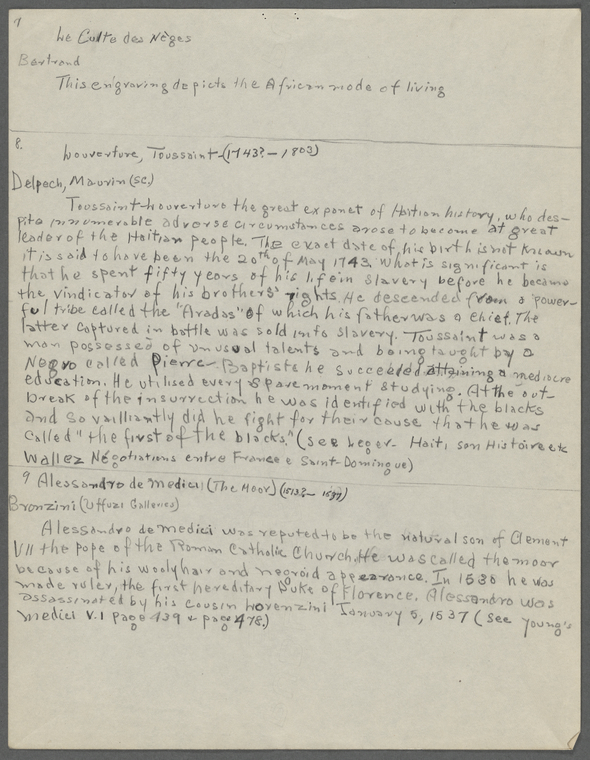 7
Le Culte des Nèges
Bertrand
This engraving depicts the African mode of living
8.
Louverture, Toussaint-(1743?-1803)
Delpech, Maurin (sc.)
Toussaint-Louverture the great exponet of Haitian history, who des-
pite innumerable adverse circumstances arose to become at great
leader of the Haitian people. The exact date of his birth is not known
it is said to have been the 20th of May 1743. What is significant is
that he spent fifty years of his life in slavery before he became
the vindicator of his brothers' rights. He descended from a power-
ful tribe called the "Aradas" of which his father was a chief. The
latter captured in battle was sold into slavery. Toussaint was a
man possessed of unusual talents and being taught by a
Negro called Pierre-Baptiste he succeeded attaining a mediocre
education. He utilised every spare moment studying. At the out-
break of the insurrection he was identified with the blacks
and so valliantly did he fight for their cause that he was
called "the first of the blacks" (see Leger- Haiti, son Histoire etc
Wallez Négotiations entre France e Saint-Domingue)
9 Alessandro de Medici (The Moor) (1513?-1537)
Bronzini (Uffuzi Galleries)
Alessandro de Medici was reputed to be the natural son of Clement
VII the pope of the Roman Catholic Church. He was called the moor
because of his woolyhair and negroid appearance. In 1530 he was
made ruler, the first hereditary Duke of Florence. Alessandro was
assassinated by his cousin Lorenzini January 5, 1537 (see Young's
Medici V.1 page 439 & page 478.)